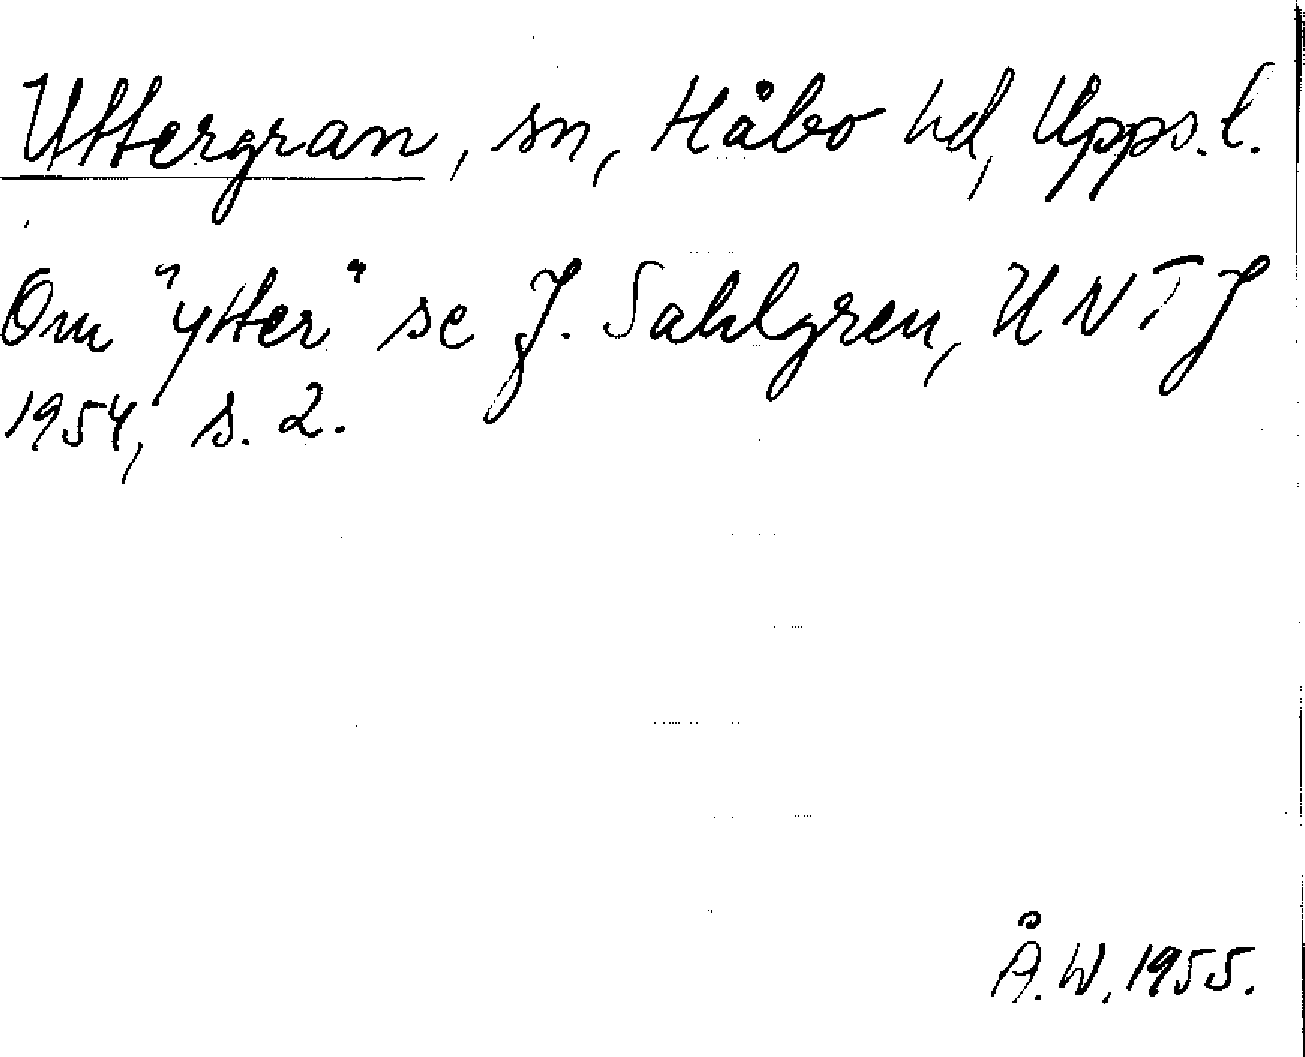 Uttergran, sn, Håbo hd, Upps. l.
Om "ytter" se J. Sahlgren, UNTJ
1954, s. 2.
Å. W. 1955.